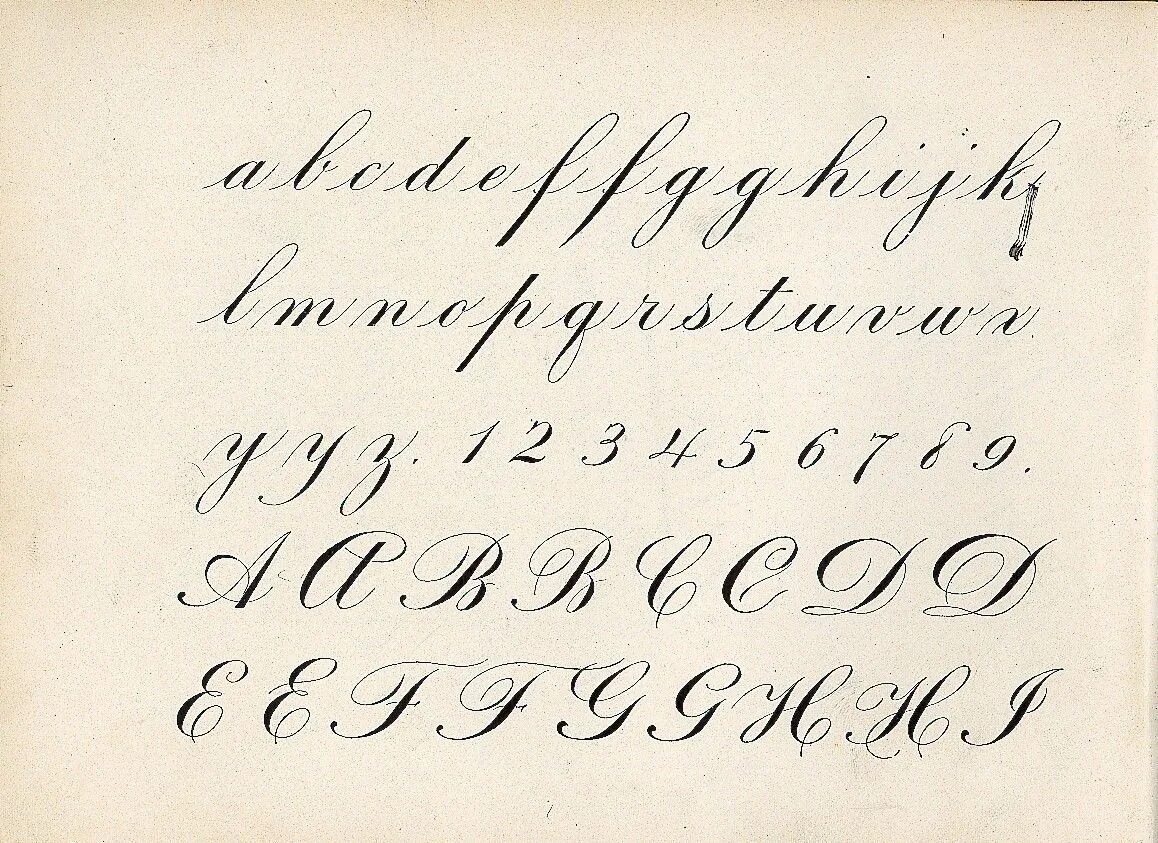 a b c d e f f g g h i j k
l m n o p q r s t u v w x
y y z. 1 2 3 4 5 6 7 8 9.
A A B B C C D D
E E F F G G H H I